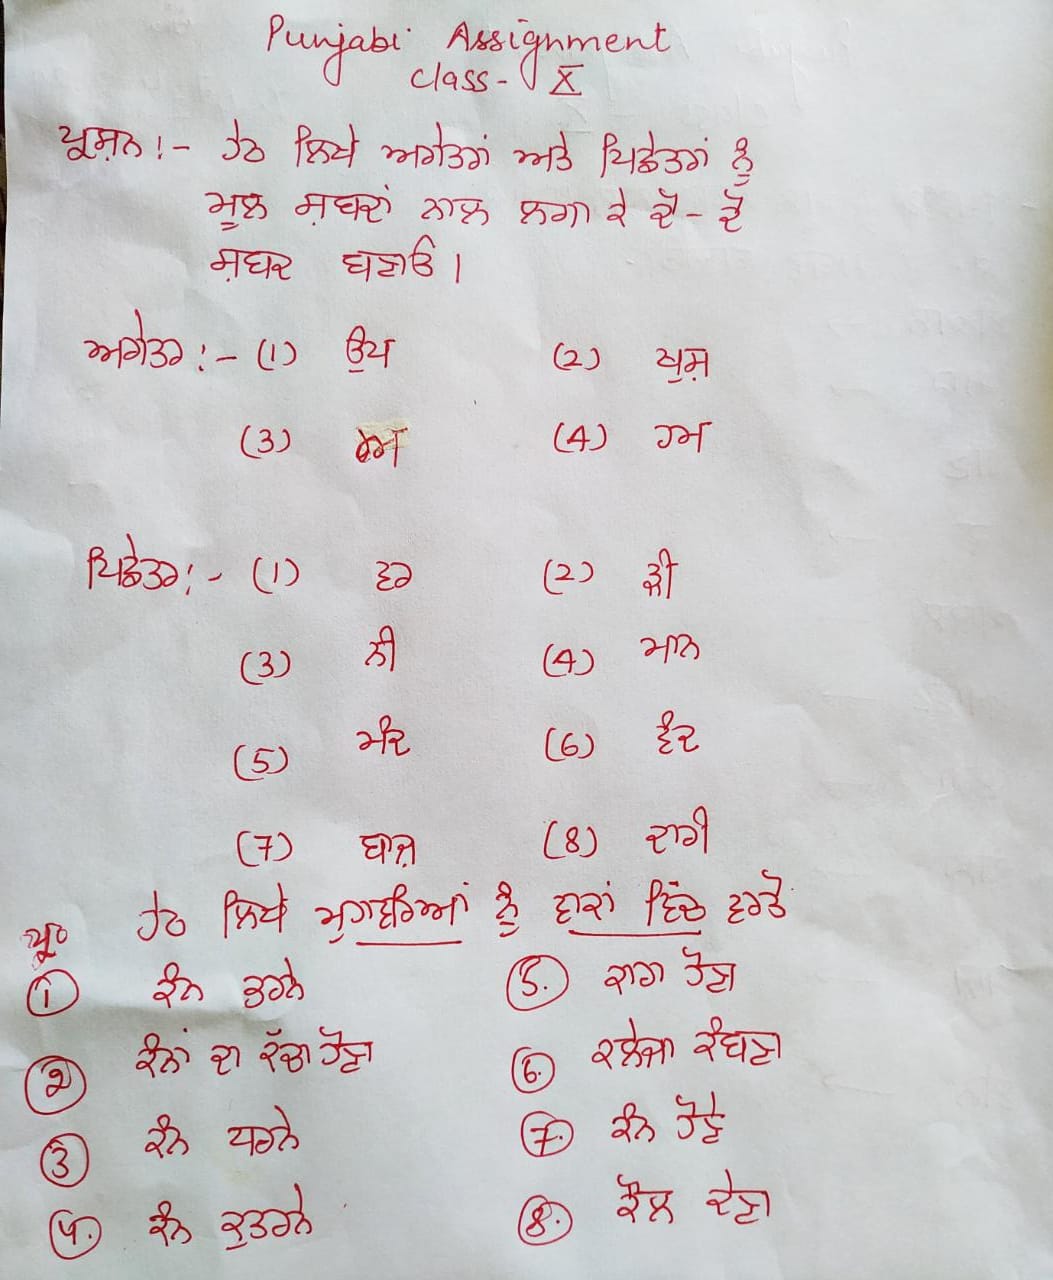 Punjabi Assignment
Class - X
ਪ੍ਰਸ਼ਨ :- ਹੇਠ ਲਿਖੇ ਅਗੇਤਰਾਂ ਅਤੇ ਪਿਛੇਤਰਾਂ ਨੂੰ
ਮੂਲ ਸ਼ਬਦਾਂ ਨਾਲ ਲਗਾ ਕੇ ਦੋ - ਦੋ
ਸ਼ਬਦ ਬਣਾਓ ।
ਅਗੇਤਰ :- (1) ਉਪ (2) ਖੁਸ਼
(3) (4) ਹਮ
ਪਿਛੇਤਰ :- (1) ਵਰ (2) ਕੀ
(3) ਨੀ (4) ਮਾਨ
(5) ਮੰਦ (6) ਵੰਦ
(7) ਬਾਜ਼ (8) ਦਾਰੀ
ਪ੍ਰ੦ ਹੇਠ ਲਿਖੇ ਮੁਹਾਵਰਿਆਂ ਨੂੰ ਵਾਕਾਂ ਵਿੱਚ ਵਰਤੋ
1 ਕੰਨ ਭਰਨੇ 5. ਕਾਗ ਹੋਣਾ
2 ਕੰਨਾਂ ਦਾ ਕੱਚਾ ਹੋਣਾ 6. ਕਲੇਜਾ ਕੰਬਣਾ
3 ਕੰਨ ਧਰਨੇ 7. ਕੰਨ ਹੋਣੇ
4. ਕੰਨ ਕੁਤਰਨੇ 8. ਕੌਲ ਦੇਣਾ